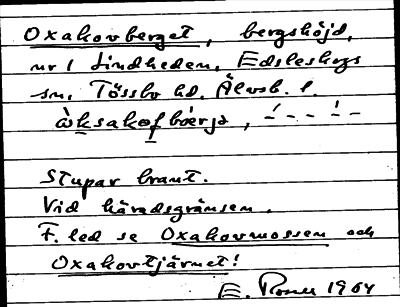 Oxakovberget, bergshöjd,
nr 1 Lindheden, Edsleskogs
sn, Tössbo hd. Älvsb. l.
Stupar brant.
Vid häradsgränsen.
F. led se Oxakovmossen och
Oxakovtjärnet!
E. 1964